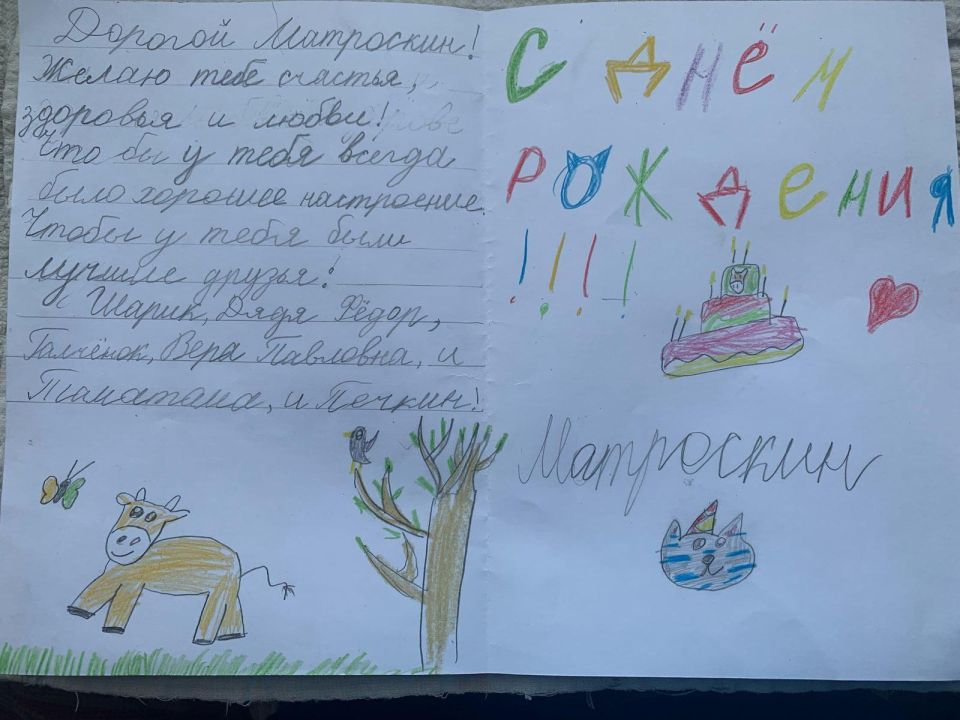 Дорогой Матроскин!
Желаю тебе счастья,
здоровья и любви!
Что бы у тебя всегда
было хорошее настроение.
Чтобы у тебя были
лучшие друзья!
Шарик, Дядя Фёдор,
Галчёнок, Вера Павловна, и
Тпматома, и Печкин!
С ДНЁМ
РОЖДЕНИЯ
!!!!
Матроскин